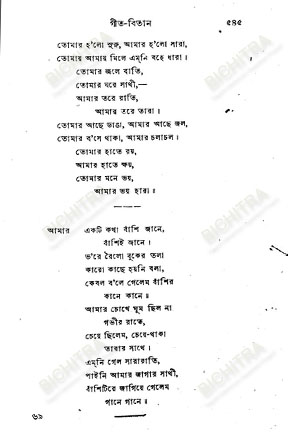 গীত-বিতান ৫৪৫
তোমার হ'লো সুরু, আমার হ'লো সারা,
তোমায় আমায় মিলে এম্‌নি বহে ধারা।
তোমার জ্বলে বাতি,
তোমার ঘরে সাথী,—
আমার তরে রাতি,
আমার তরে তারা।
তোমার আছে ডাঙা, আমার আছে জল,
তোমার ব'সে থাকা, আমার চলাচল।
তোমার হাতে রয়,
আমার হাতে ক্ষয়,
তোমার মনে ভয়,
আমার ভয় হারা॥
আমার একটি কথা বাঁশি জানে,
বাঁশিই জানে।
ভ'রে রৈলো বুকের তলা
কারো কাছে হয়নি বলা,
কেবল ব'লে গেলেম বাঁশির
কানে কানে॥
আমার চোখে ঘুম ছিল না
গভীর রাতে,
চেয়ে ছিলেম, চেয়ে-থাকা
তারার সাথে।
এম্‌নি গেল সারারাতি,
পাইনি আমার জাগার সাথী,
বাঁশিটিরে জাগিয়ে গেলেম
গানে গানে॥
৬৯
BICHITRA
BICHITRA
BICHITRA
BICHITRA
BICHITRA
BICHITRA